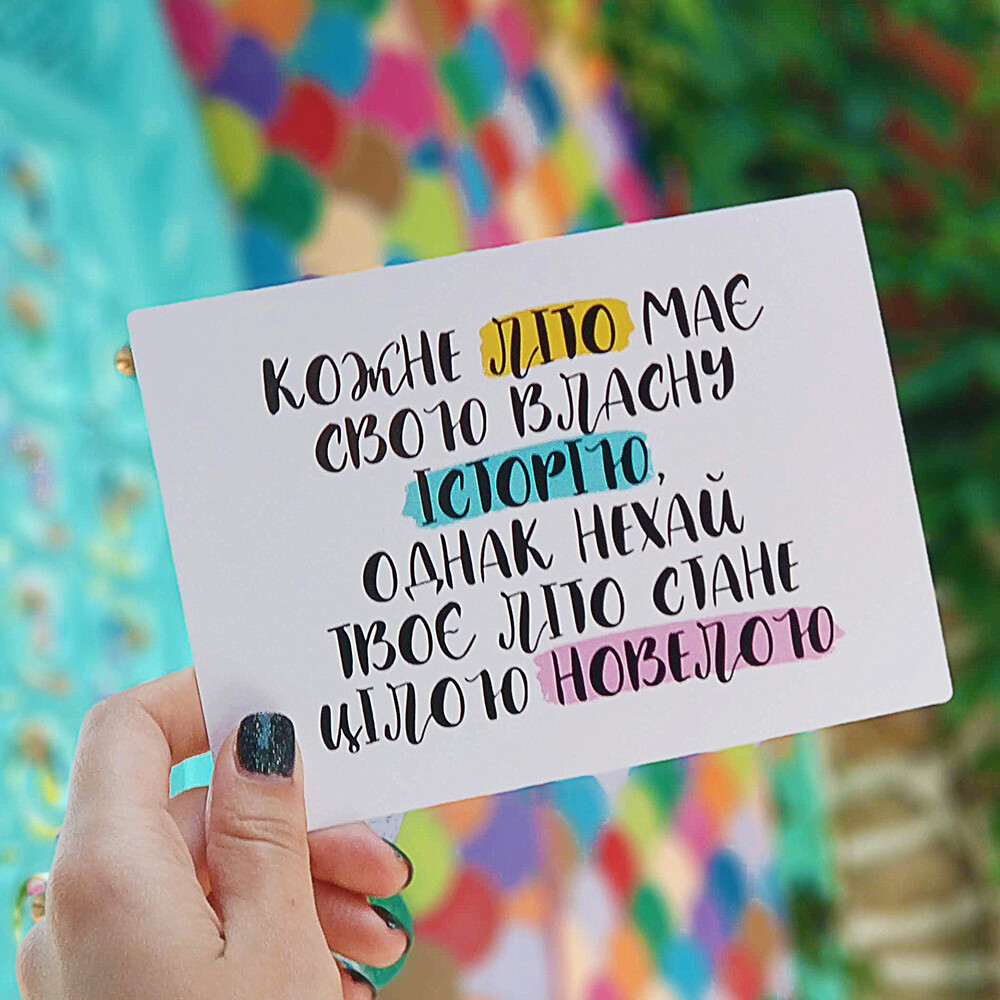 КОЖНЕ ЛІТО МАЄ
СВОЮ ВЛАСНУ
ІСТОРІЮ,
ОДНАК НЕХАЙ
ТВОЄ ЛІТО СТАНЕ
ЦІЛОЮ НОВЕЛОЮ